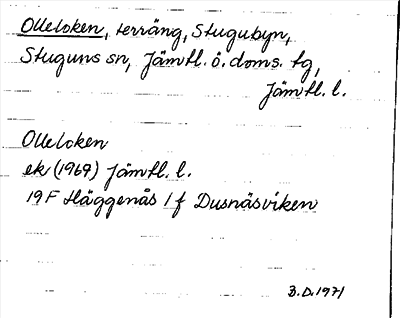 Olleloken, terräng, Stugubyn,
Stuguns sn, Jämtl. ö. doms. tg,
Jämtl. l.
Olleloken
ek (1969) Jämtl. l.
19 F Häggenås 1 f Dusnäsviken
B.D. 1971